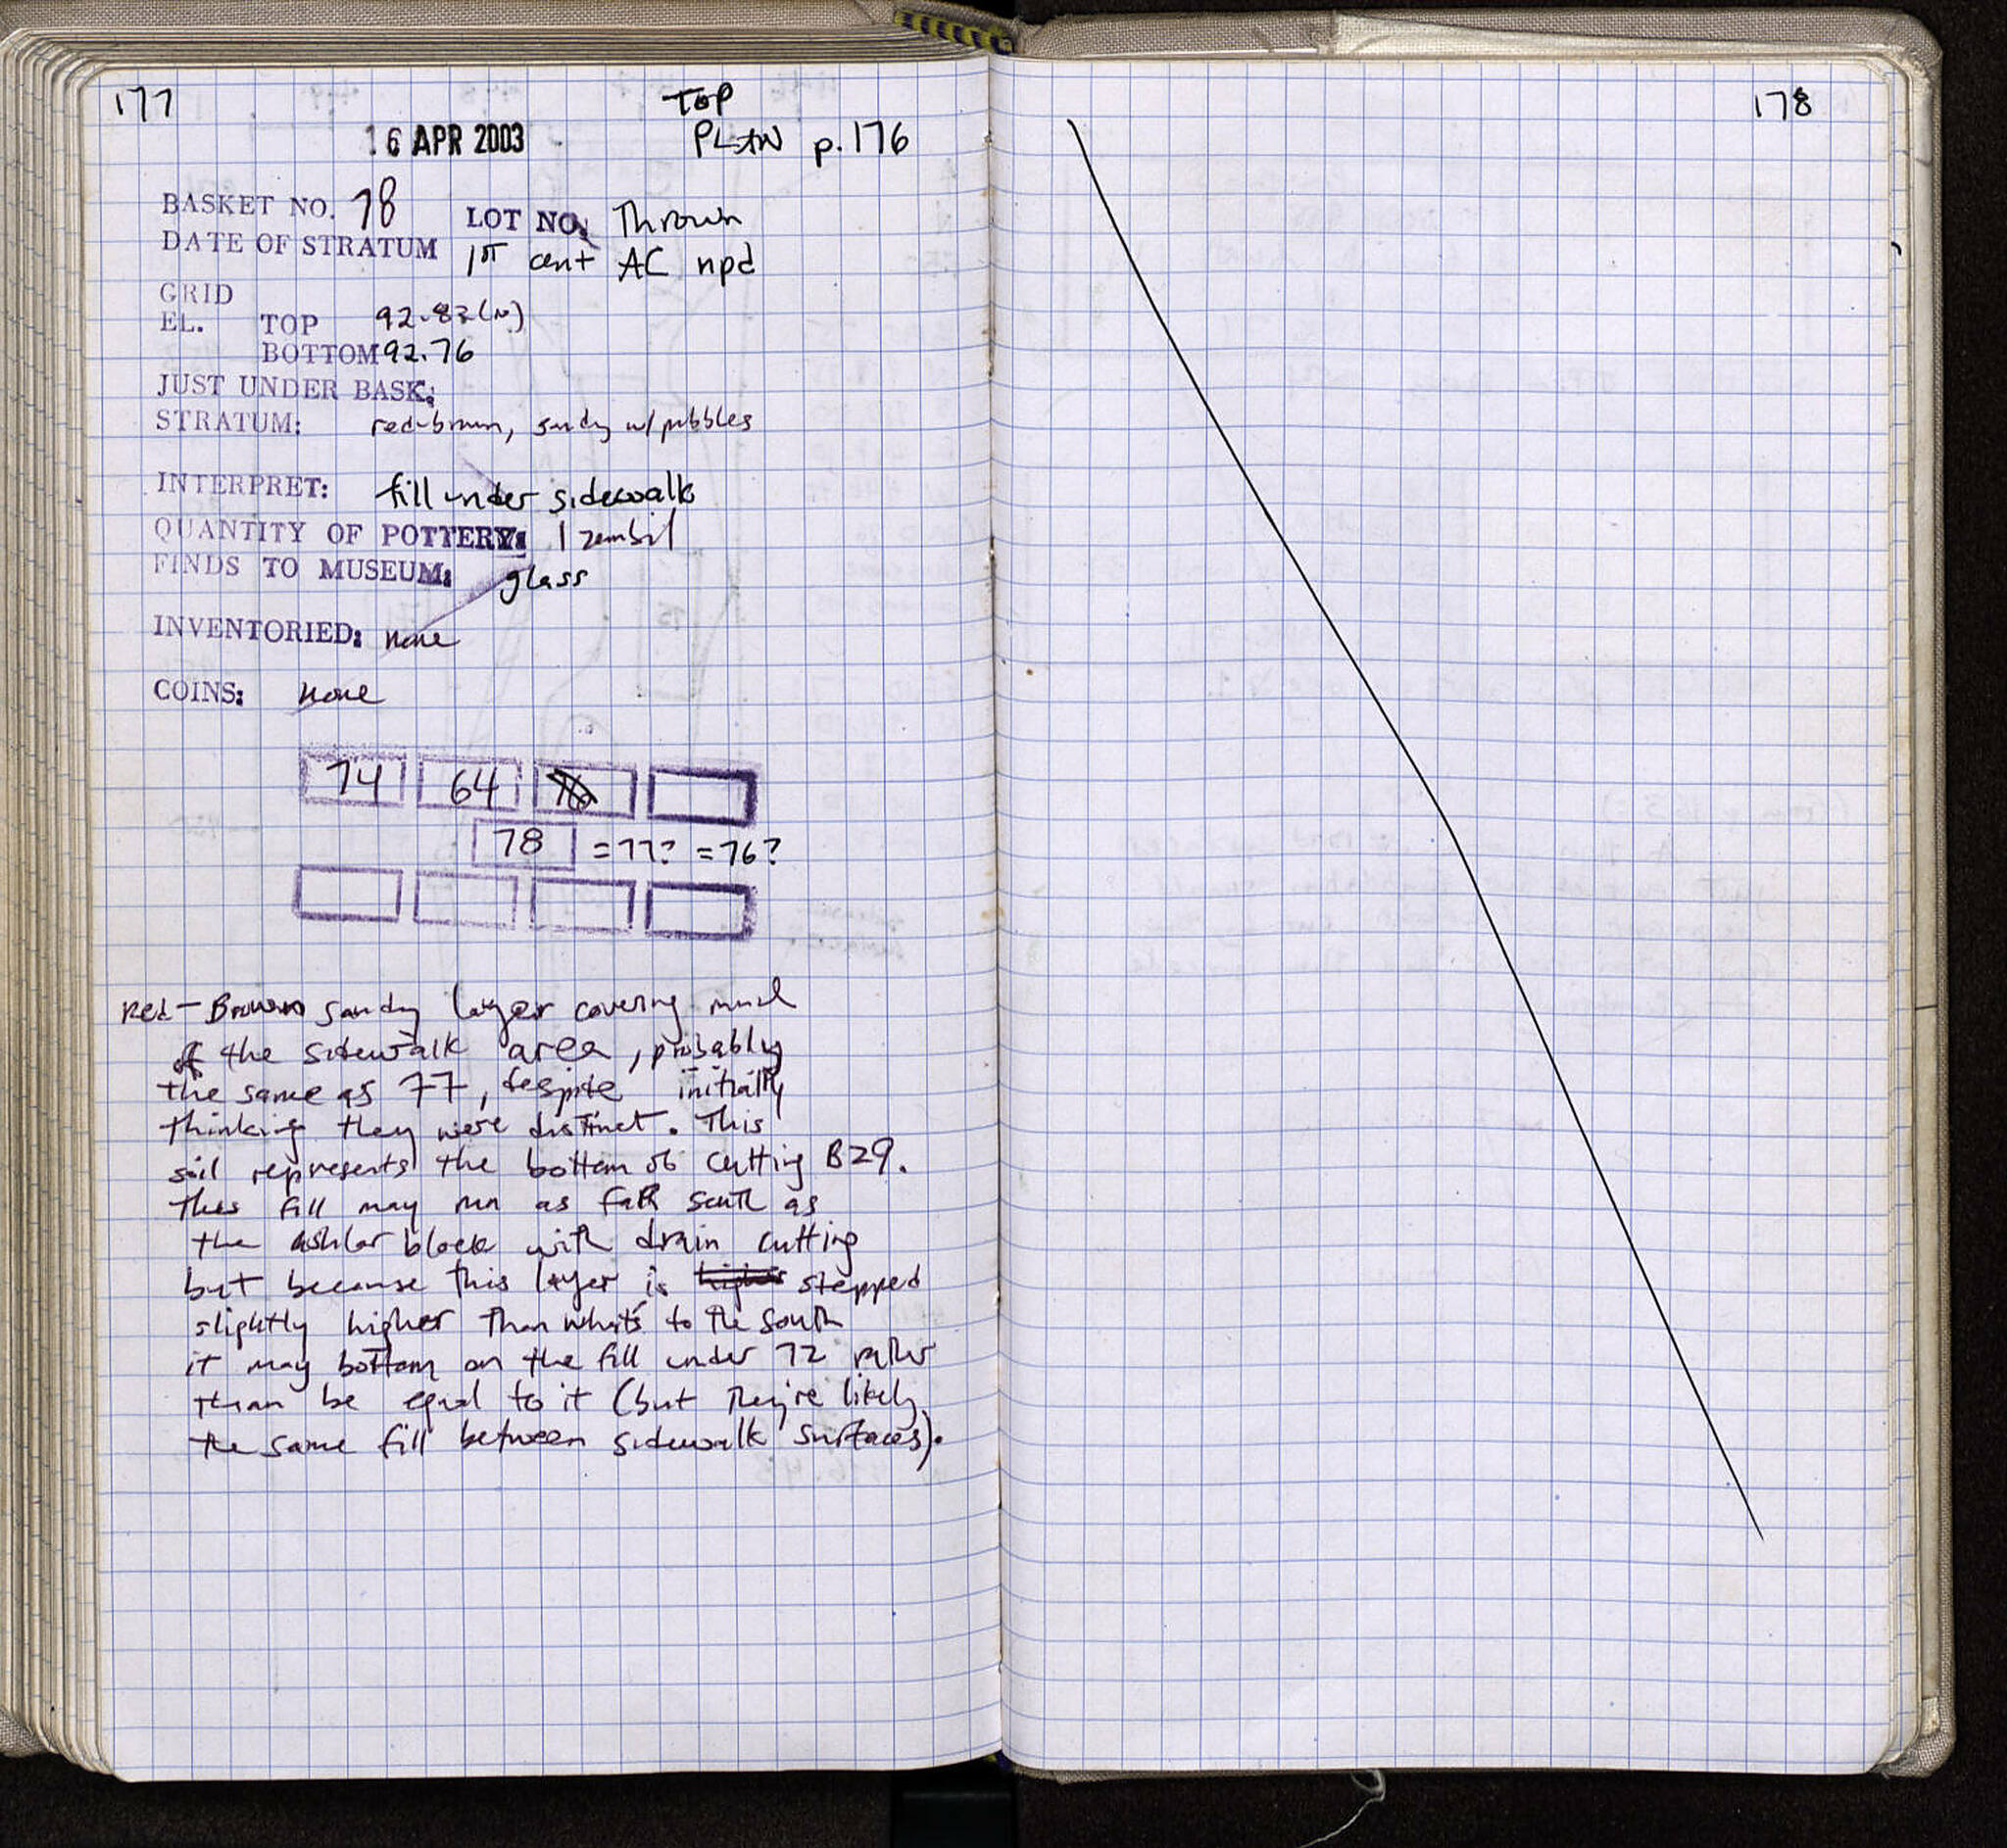 177
TOP
16 APR 2003
PLAN p.176
BASKET NO. 78 LOT NO. Thrown
DATE OF STRATUM 1st cent AC npd
GRID
EL. TOP 92.83 (N)
BOTTOM 92.76
JUST UNDER BASK:
STRATUM: red-brown, sandy w/ pebbles
INTERPRET: fill under sidewalk
QUANTITY OF POTTERY: 1 zembil
FINDS TO MUSEUM: glass
INVENTORIED: none
COINS: none
74 64 76
78 =77? =76?
Red-Brown sandy layer covering much
of the sidewalk area, probably
the same as 77, despite initially
thinking they were distinct. This
soil represents the bottom of cutting B29.
This fill may run as far south as
the ashlar block with drain cutting
but because this layer is higher stepped
slightly higher than what's to the south
it may bottom on the fill under 72 rather
than be equal to it (but they're likely
the same fill between sidewalk surfaces).
178